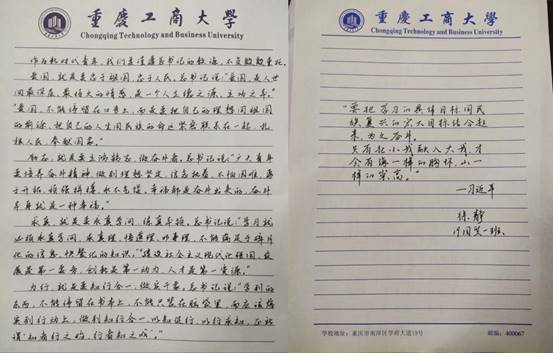 重慶工商大學
Chongqing Technology and Business University
作为新时代青年，我们要谨遵总书记的教诲，不负殷殷重托。
爱国，就是要忠于祖国，忠于人民。总书记说："爱国，是人世
间最深层、最持久的情感，是一个人立德之源、立功之本。"
"爱国，不能停留在口号上，而是要把自己的理想同祖国
的前途、把自己的人生同民族的命运紧密联系在一起，扎根
人民，奉献国家。"
励志，就是要立鸿鹄志，做奋斗者。总书记说："广大青年
要培养奋斗精神，做到理想坚定，信念执着，不怕困难，勇
于开拓，顽强拼搏，永不气馁。幸福都是奋斗出来的，奋斗
本身就是一种幸福。"
求真，就是要求真学问，练真本领。总书记说："学习就
必须求真学问，求真理、悟道理、明事理，不能满足于碎片
化的信息、快餐化的知识。""建设社会主义现代化强国，发
展是第一要务，创新是第一动力，人才是第一资源。"
力行，就是要知行合一，做实干家。总书记说："学到的
东西，不能停留在书本上，不能只装在脑袋里，而应该落
实到行动上，做到知行合一、以知促行、以行求知，正所
谓'知者行之始，行者知之成'。"
重慶工商大學
Chongqing Technology and Business University
"要把学习的具体目标同民
族复兴的宏大目标结合起
来，为之奋斗。
只有把小我融入大我，才
会有海一样的胸怀，山一
样的崇高。"
—习近平
徐静
19国贸一班
学校地址：重庆市南岸区学府大道19号
邮编：400067